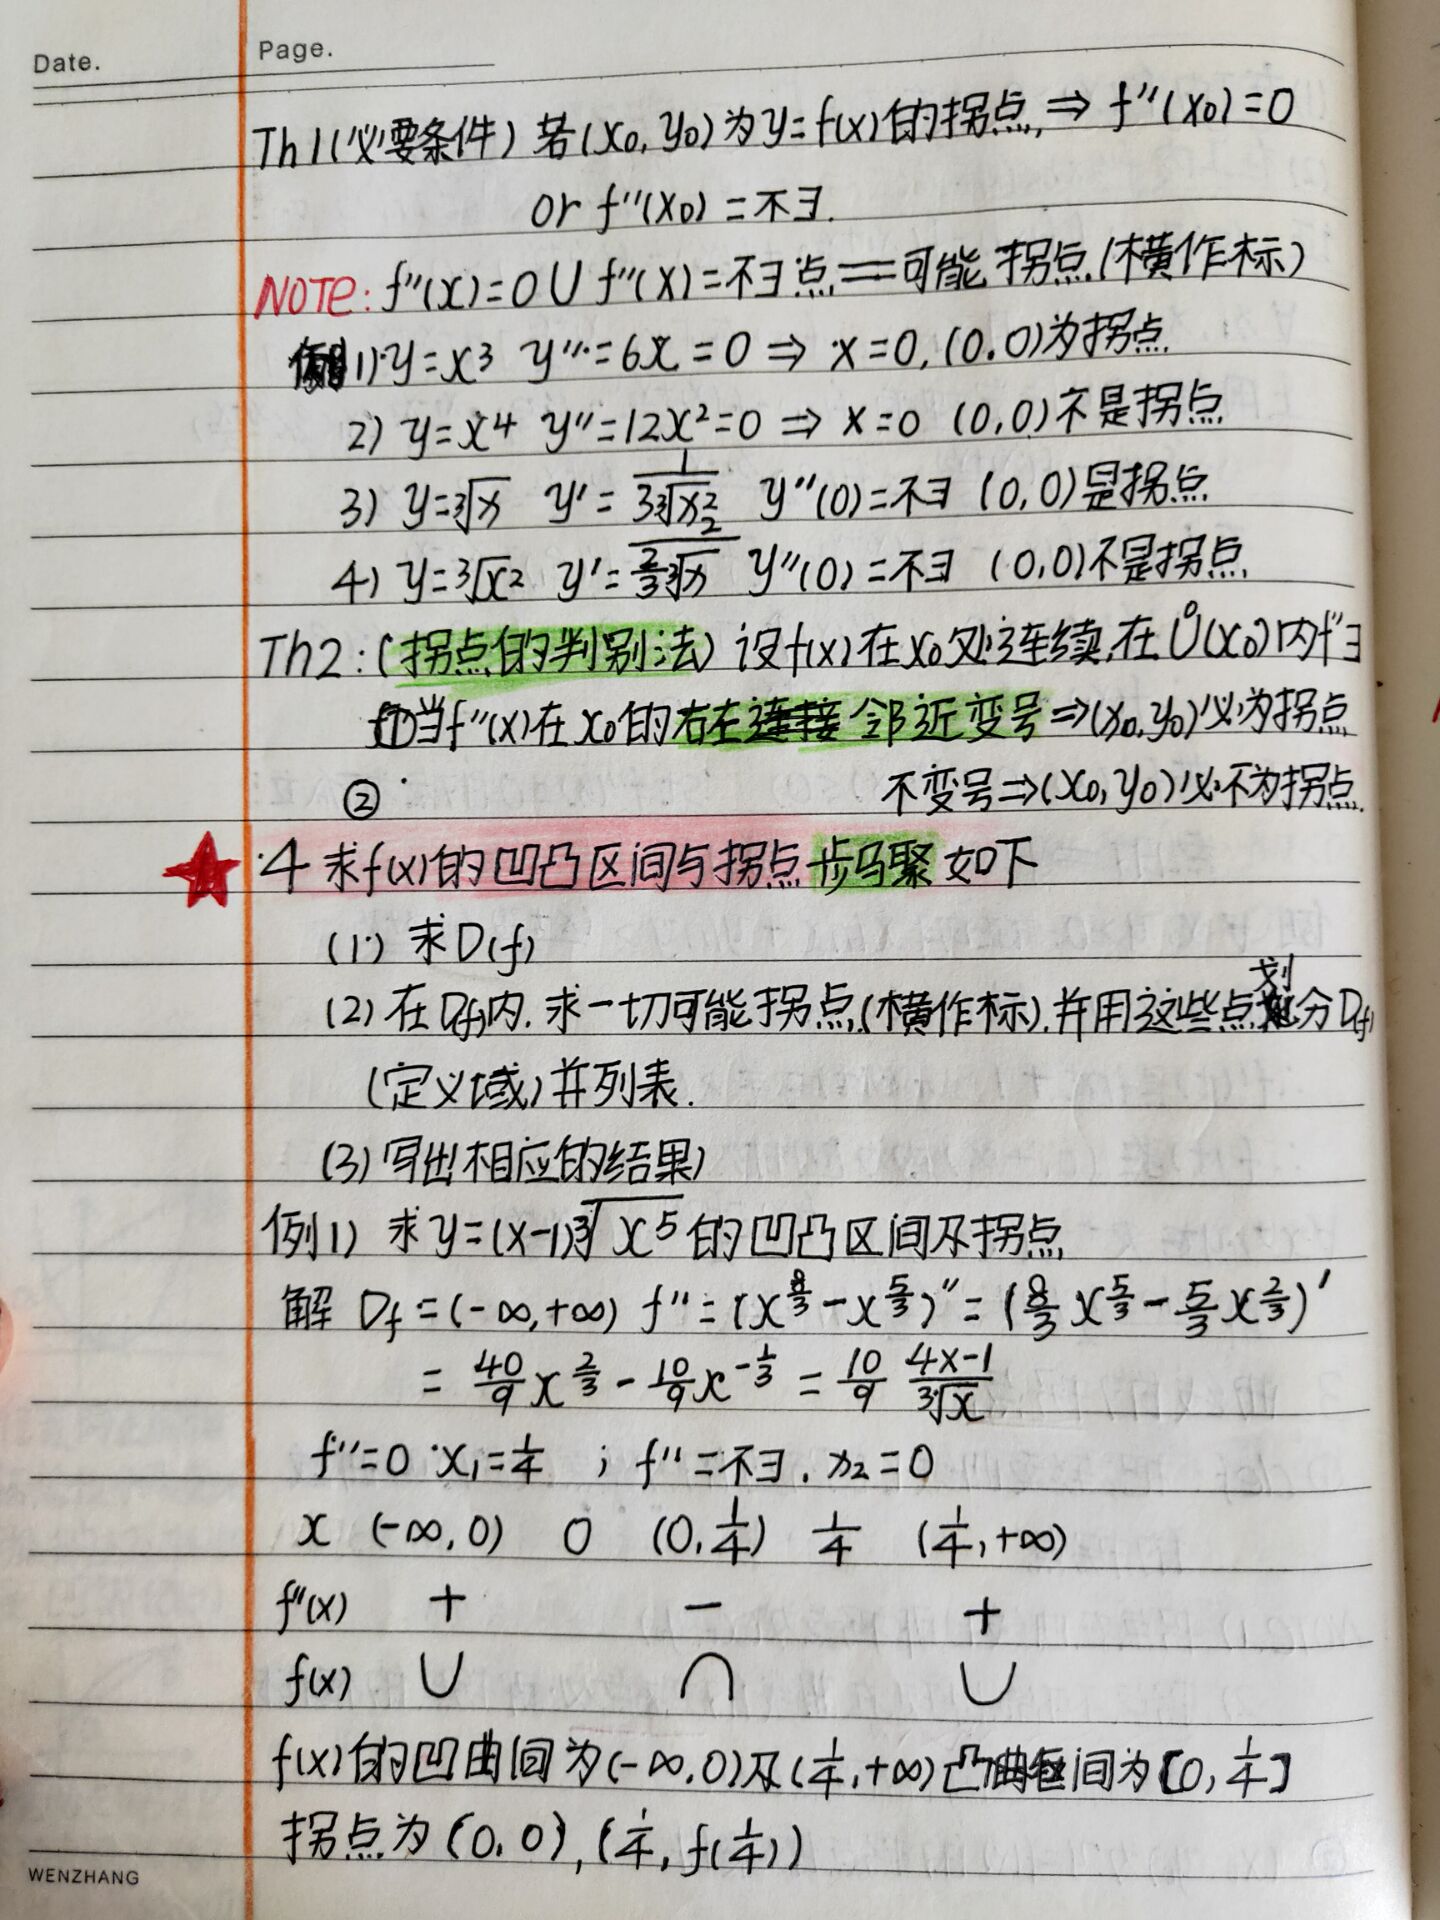 Date.
Page.
Th1(必要条件) 若(x₀, y₀)为y=f(x)的拐点, ⇒ f''(x₀)=0
or f''(x₀)=不∃.
NOTE: f''(x)=0 ∪ f''(x)=不∃点==可能拐点(横作标)
例1) y=x³ y''=6x=0 ⇒ x=0, (0.0)为拐点.
2) y=x⁴ y''=12x²=0 ⇒ x=0 (0,0)不是拐点
3) y=∛x y'=1/(3∛x²) y''(0)=不∃ (0,0)是拐点.
4) y=∛x² y'=2/(3∛x) y''(0)=不∃ (0,0)不是拐点.
Th2:(拐点的判别法) 设f(x)在x₀处连续,在Ů(x₀)内f''∃
①当f''(x)在x₀的右左邻近变号⇒(x₀,y₀)必为拐点
② 不变号⇒(x₀,y₀)必不为拐点.
★ 4 求f(x)的凹凸区间与拐点步骤如下
(1) 求D(f)
(2) 在D(f)内. 求一切可能拐点(横作标),并用这些点划分D(f)
(定义域)并列表.
(3) 写出相应的结果)
例1) 求y=(x-1)∛x⁵的凹凸区间及拐点
解 Df=(-∞,+∞) f''=(x^(8/3)-x^(5/3))''=(8/3 x^(5/3)-5/3 x^(2/3))'
=40/9 x^(2/3)-10/9 x^(-1/3)=10/9 (4x-1)/∛x
f''=0 x₁=1/4 ; f''=不∃. x₂=0
x (-∞,0) 0 (0,1/4) 1/4 (1/4,+∞)
f''(x) + − +
f(x) ∪ ∩ ∪
f(x)的凹曲间为(-∞,0)及(1/4,+∞)凸区间为[0,1/4]
拐点为(0,0),(1/4,f(1/4))
WENZHANG